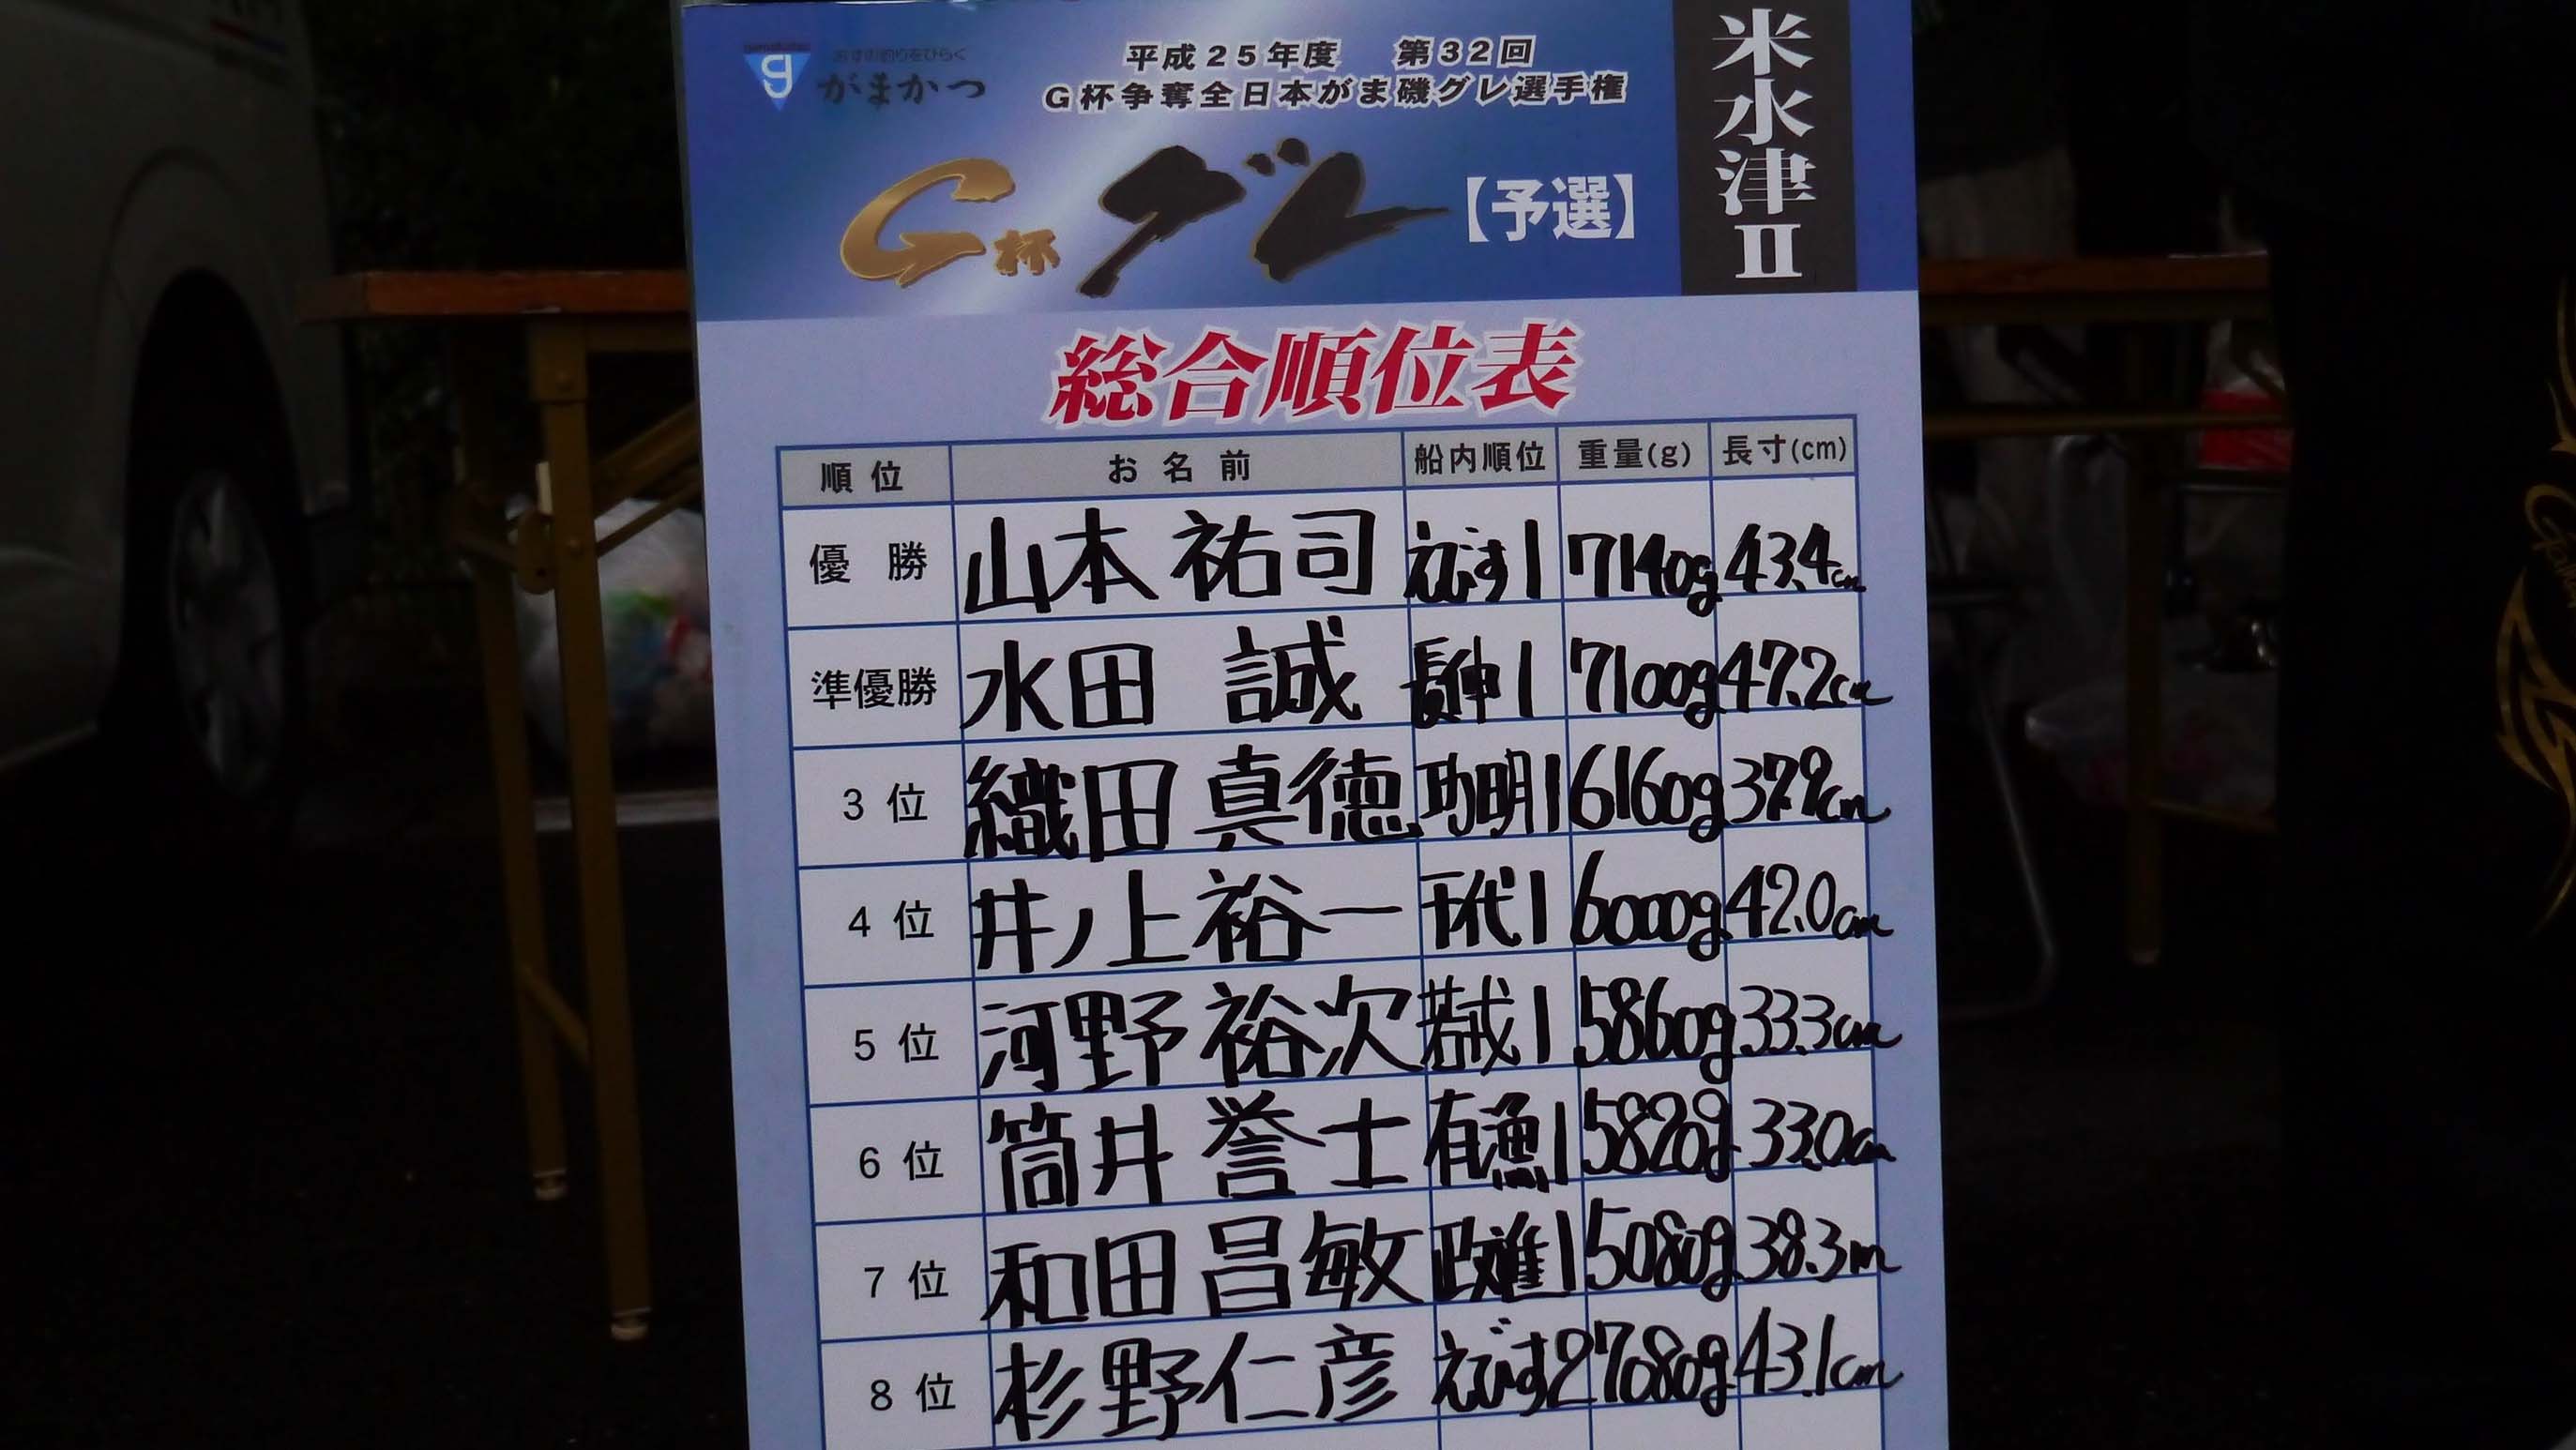 がまかつ
平成25年度 第32回
G杯争奪全日本がま磯グレ選手権
G杯グレ【予選】
米水津Ⅱ
総合順位表
順位 お名前 船内順位 重量(g) 長寸(cm)
優勝 山本祐司 えびす1 7140g 43.4cm
準優勝 水田 誠 長伸1 7100g 47.2cm
3位 織田真徳 功明1 6160g 37.9cm
4位 井ノ上裕一 千代1 6000g 42.0cm
5位 河野裕次 1 5860g 33.3cm
6位 筒井誉士 有漁1 5820g 33.0cm
7位 和田昌敏 政進1 5080g 38.3m
8位 杉野仁彦 えびす2 7080g 43.1cm